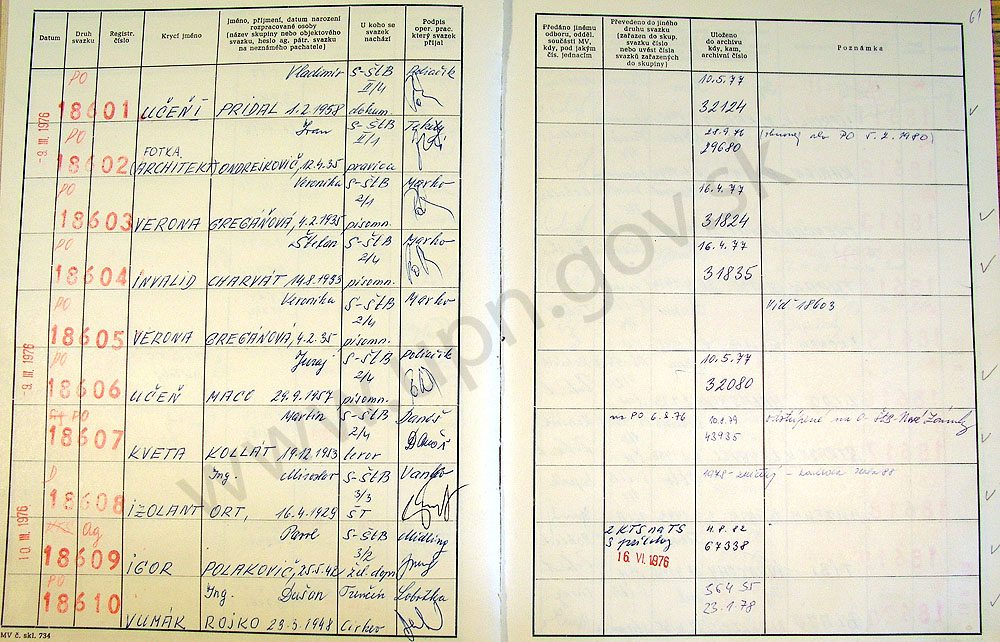 Datum
Druh svazku
Registr. číslo
Krycí jméno
Jméno, příjmení, datum narození rozpracované osoby (název skupiny nebo objektového svazku, heslo ag. pátr. svazku na neznámého pachatele)
U koho se svazek nachází
Podpis oper. prac. který svazek přijal
Předáno jinému odboru, odděl. součásti MV, kdy, pod jakým čís. jednacím
Převedeno do jiného druhu svazku (zařazen do skup. svazku číslo nebo uvést čísla svazků zařazených do skupiny)
Uloženo do archivu kdy, kam, archivní číslo
Poznámka
61
-9. III. 1976
PO Vladimír S-ŠtB Poliačik 10.5.77
II/4
18601 UČEŇ PRIDAL 1.2.1958 dokum. 32124
PO Ivan S-ŠtB 28.9.76
II/1
18602 FOTKA (ARCHITEKT) ONDREJKOVIČ, 12.4.35 pravica 29680
PO Veronika S-ŠtB Marko 16.4.77
2/1
18603 VERONA GREGÁŇOVÁ, 4.2.1935 písomn. 31824
PO Štefan S-ŠtB Marko 16.4.77
2/4
18604 INVALID CHARVÁT 14.8.1933 písomn. 31835
PO Veronika S-ŠtB Marko Viď 18603
2/4
18605 VERONA GREGÁŇOVÁ, 4.2.35 písomn.
-9. III. 1976
PO Juraj S-ŠtB Poliačik 10.5.77
2/4
18606 UČEŇ MACO 29.9.1957 písomn. 32080
PO Martin S-ŠtB Daňoš na PO 6.3.76 10.8.79
2/4
18607 KVETA KOLLÁT 19.12.1953 teror Daňoš 43935
D Ing. Miroslav S-ŠtB Vanko
3/3
18608 IZOLANT ORT, 16.4.1929 ŠT
10. III. 1976
Ag Pavol S-ŠtB Midling 2 KTS na TS 4.8.82
3/2
18609 IGOR POLAKOVIČ, 25.5.42 žel. dopr. 16. VI. 1976 67338
PO Ing. Dušan Trenčín Lobotka 36435
18610 VUMÁK ROJKO 23.3.1948 Cirkev 23.1.78
MV č. skl. 734
www.upn.gov.sk